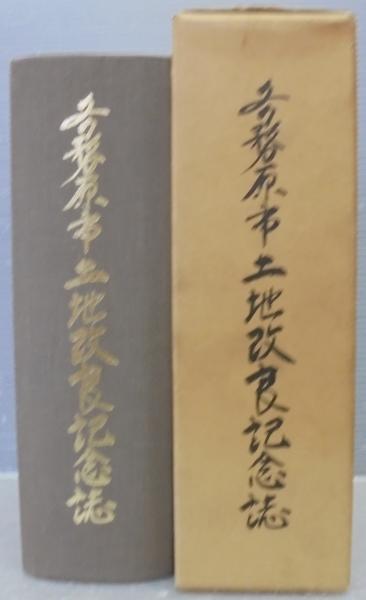 各務原市土地改良記念誌
各務原市土地改良記念誌